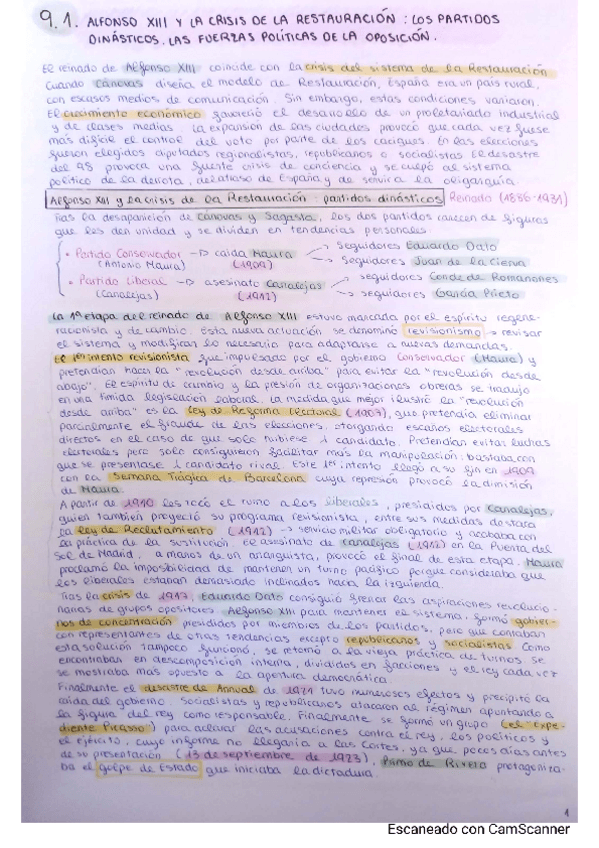 9.1. ALFONSO XIII Y LA CRISIS DE LA RESTAURACIÓN : LOS PARTIDOS
DINÁSTICOS. LAS FUERZAS POLÍTICAS DE LA OPOSICIÓN.
El reinado de Alfonso XIII coincide con la crisis del sistema de la Restauración
Cuando Cánovas diseña el modelo de Restauración, España era un país rural,
con escasos medios de comunicación. Sin embargo, estas condiciones variaron.
El crecimiento económico favoreció el desarrollo de un proletariado industrial
y de clases medias. La expansión de las ciudades provocó que cada vez fuese
más difícil el control del voto por parte de los caciques. En las elecciones
fueron elegidos diputados regionalistas, republicanos o socialistas El desastre
del 98 provoca una fuerte crisis de conciencia y se culpó al sistema
político de la derrota, del atraso de España y de servir a la oligarquía.
Alfonso XIII y la crisis de la Restauración : partidos dinásticos Reinado (1886-1931)
Tras la desaparición de Cánovas y Sagasta, los dos partidos carecen de figuras
que les den unidad y se dividen en tendencias personales.
• Partido Conservador → caída Maura → seguidores Eduardo Dato
(Antonio Maura) (1909) → seguidores Juan de la Cierva
• Partido Liberal → asesinato Canalejas → seguidores Conde de Romanones
(Canalejas) (1912) → seguidores García Prieto
La 1ª etapa del reinado de Alfonso XIII estuvo marcada por el espíritu regene-
racionista y de cambio. Esta nueva actuación se denominó revisionismo → revisar
el sistema y modificar lo necesario para adaptarse a nuevas demandas.
El 1er intento revisionista fue impulsado por el gobierno Conservador (Maura) y
pretendían hacer la "revolución desde arriba" para evitar la "revolución desde
abajo". El espíritu de cambio y la presión de organizaciones obreras se tradujo
en una tímida legislación laboral. La medida que mejor ilustró la "revolución
desde arriba" es la Ley de Reforma Electoral (1907), que pretendía eliminar
parcialmente el fraude de las elecciones, otorgando escaños electorales
directos en el caso de que solo hubiese 1 candidato. Pretendían evitar luchas
electorales pero solo consiguieron facilitar más la manipulación: bastaba con
que se presentase 1 candidato rival. Este 1er intento llegó a su fin en 1909
con la Semana Trágica de Barcelona cuya represión provocó la dimisión
de Maura.
A partir de 1910 les tocó el turno a los liberales, presididos por Canalejas,
quien también proyectó su programa revisionista, entre sus medidas destaca
la Ley de Reclutamiento (1912) → servicio militar obligatorio y acababa con
la práctica de la sustitución. El asesinato de Canalejas (1912) en la Puerta del
Sol de Madrid, a manos de un anarquista, provocó el final de esta etapa. Maura
proclamó la imposibilidad de mantener un turno pacífico porque consideraba que
los liberales estaban demasiado inclinados hacia la izquierda.
Tras la crisis de 1917, Eduardo Dato consiguió frenar las aspiraciones revolucio-
narias de grupos opositores. Alfonso XIII para mantener el sistema, formó gobier-
nos de concentración presididos por miembros de los partidos, pero que contaban
con representantes de otras tendencias excepto republicanos y socialistas Como
esta solución tampoco funcionó, se retornó a la vieja práctica de turnos. Se
encontraban en descomposición interna, divididos en facciones y el rey cada vez
se mostraba más opuesto a la apertura democrática.
Finalmente el desastre de Annual de 1921 tuvo numerosos efectos y precipitó la
caída del gobierno. Socialistas y republicanos atacaron al régimen apuntando a
la figura del rey como responsable. Finalmente se formó un grupo (el "Expe-
diente Picasso") para aclarar las acusaciones contra el rey, los políticos y
el ejército, cuyo informe no llegaría a las Cortes, ya que pocos días antes
de su presentación (13 de septiembre de 1923), Primo de Rivera protagoniza-
ba el golpe de Estado que iniciaba la dictadura.
1
Escaneado con CamScanner